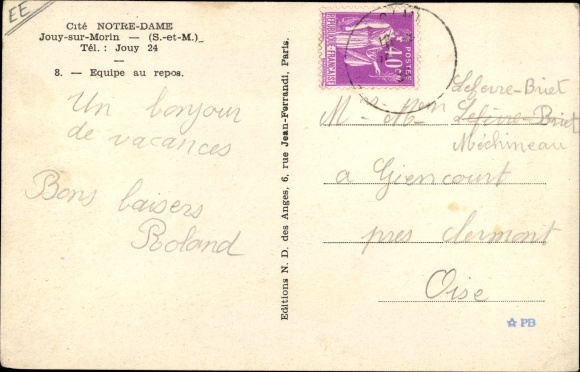 EE
Cité NOTRE-DAME
Jouy-sur-Morin — (S.-et-M.)
Tél. : Jouy 24
—
8. — Equipe au repos.
Un bonjour
de vacances
Bons baisers
Roland
Editions N. D. des Anges, 6, rue Jean-Ferrandi, Paris.
REPUBLIQUE FRANÇAISE
POSTES
40c
Lefevre-Briet
M - Mem Lefèvre-Briet
Méchineau
a Giencourt
pres clermont
Oise
PB